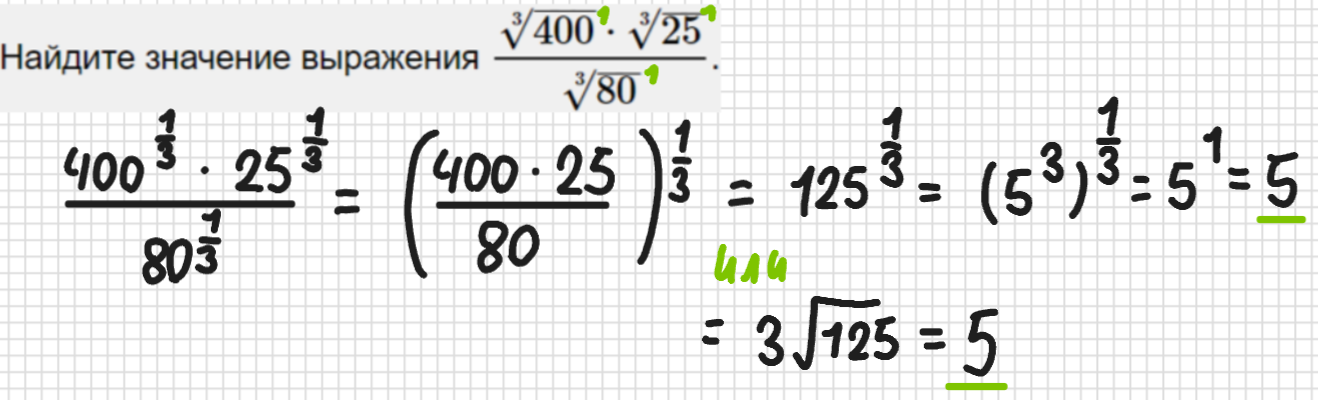 Найдите значение выражения \frac{\sqrt[3]{400}^1 \cdot \sqrt[3]{25}^1}{\sqrt[3]{80}^1}.
\frac{400^{\frac{1}{3}} \cdot 25^{\frac{1}{3}}}{80^{\frac{1}{3}}} = \left(\frac{400 \cdot 25}{80}\right)^{\frac{1}{3}} = 125^{\frac{1}{3}} = (5^3)^{\frac{1}{3}} = 5^1 = 5
или
= 3\sqrt{125} = 5